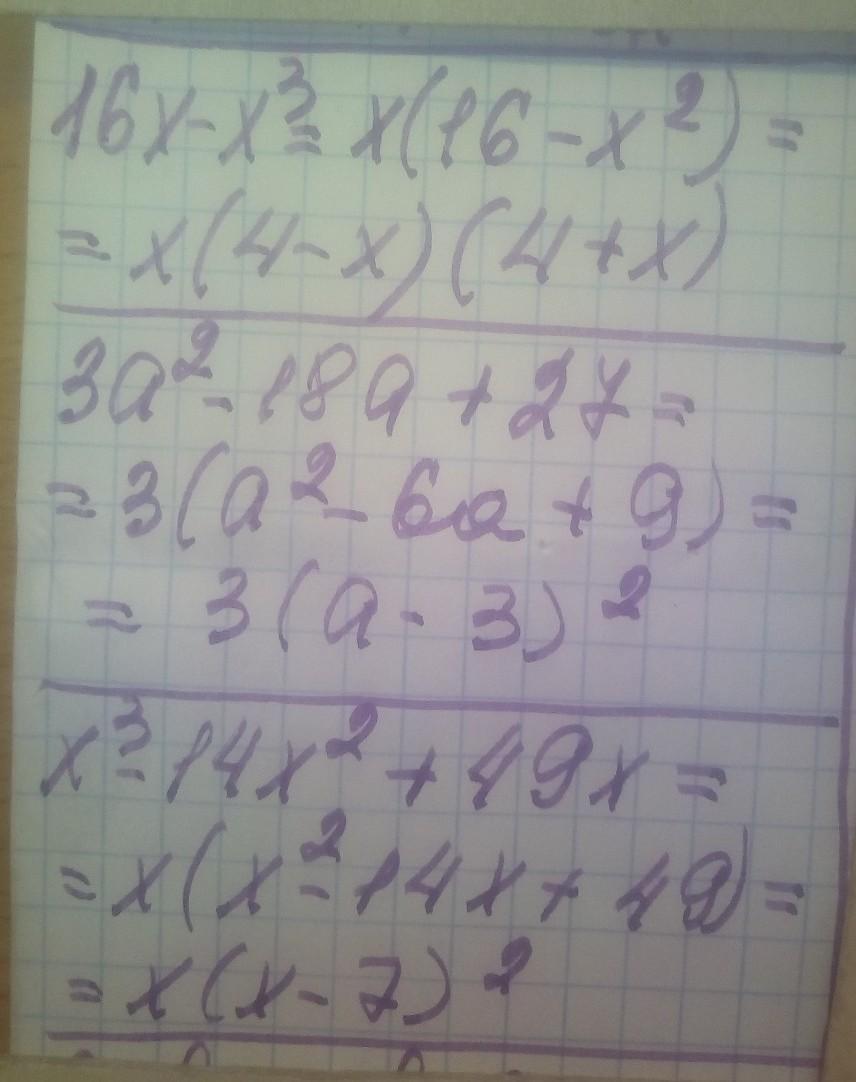 16x-x³= x(16-x²)=
=x(4-x)(4+x)
3a²-18a+27=
=3(a²-6a+9)=
= 3(a-3)²
x³-14x²+49x=
=x(x²-14x+49)=
=x(x-7)²